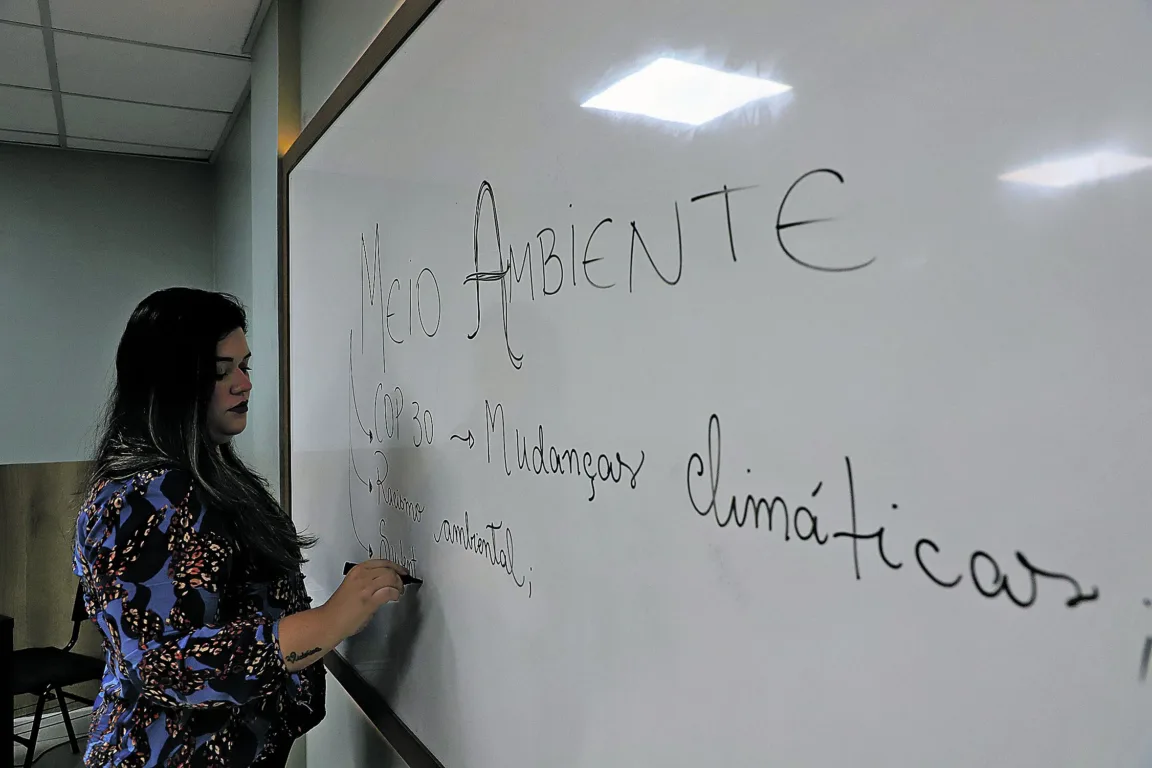 MEIO AMBIENTE
COP 30 → Mudanças climáticas;
Racismo ambiental;